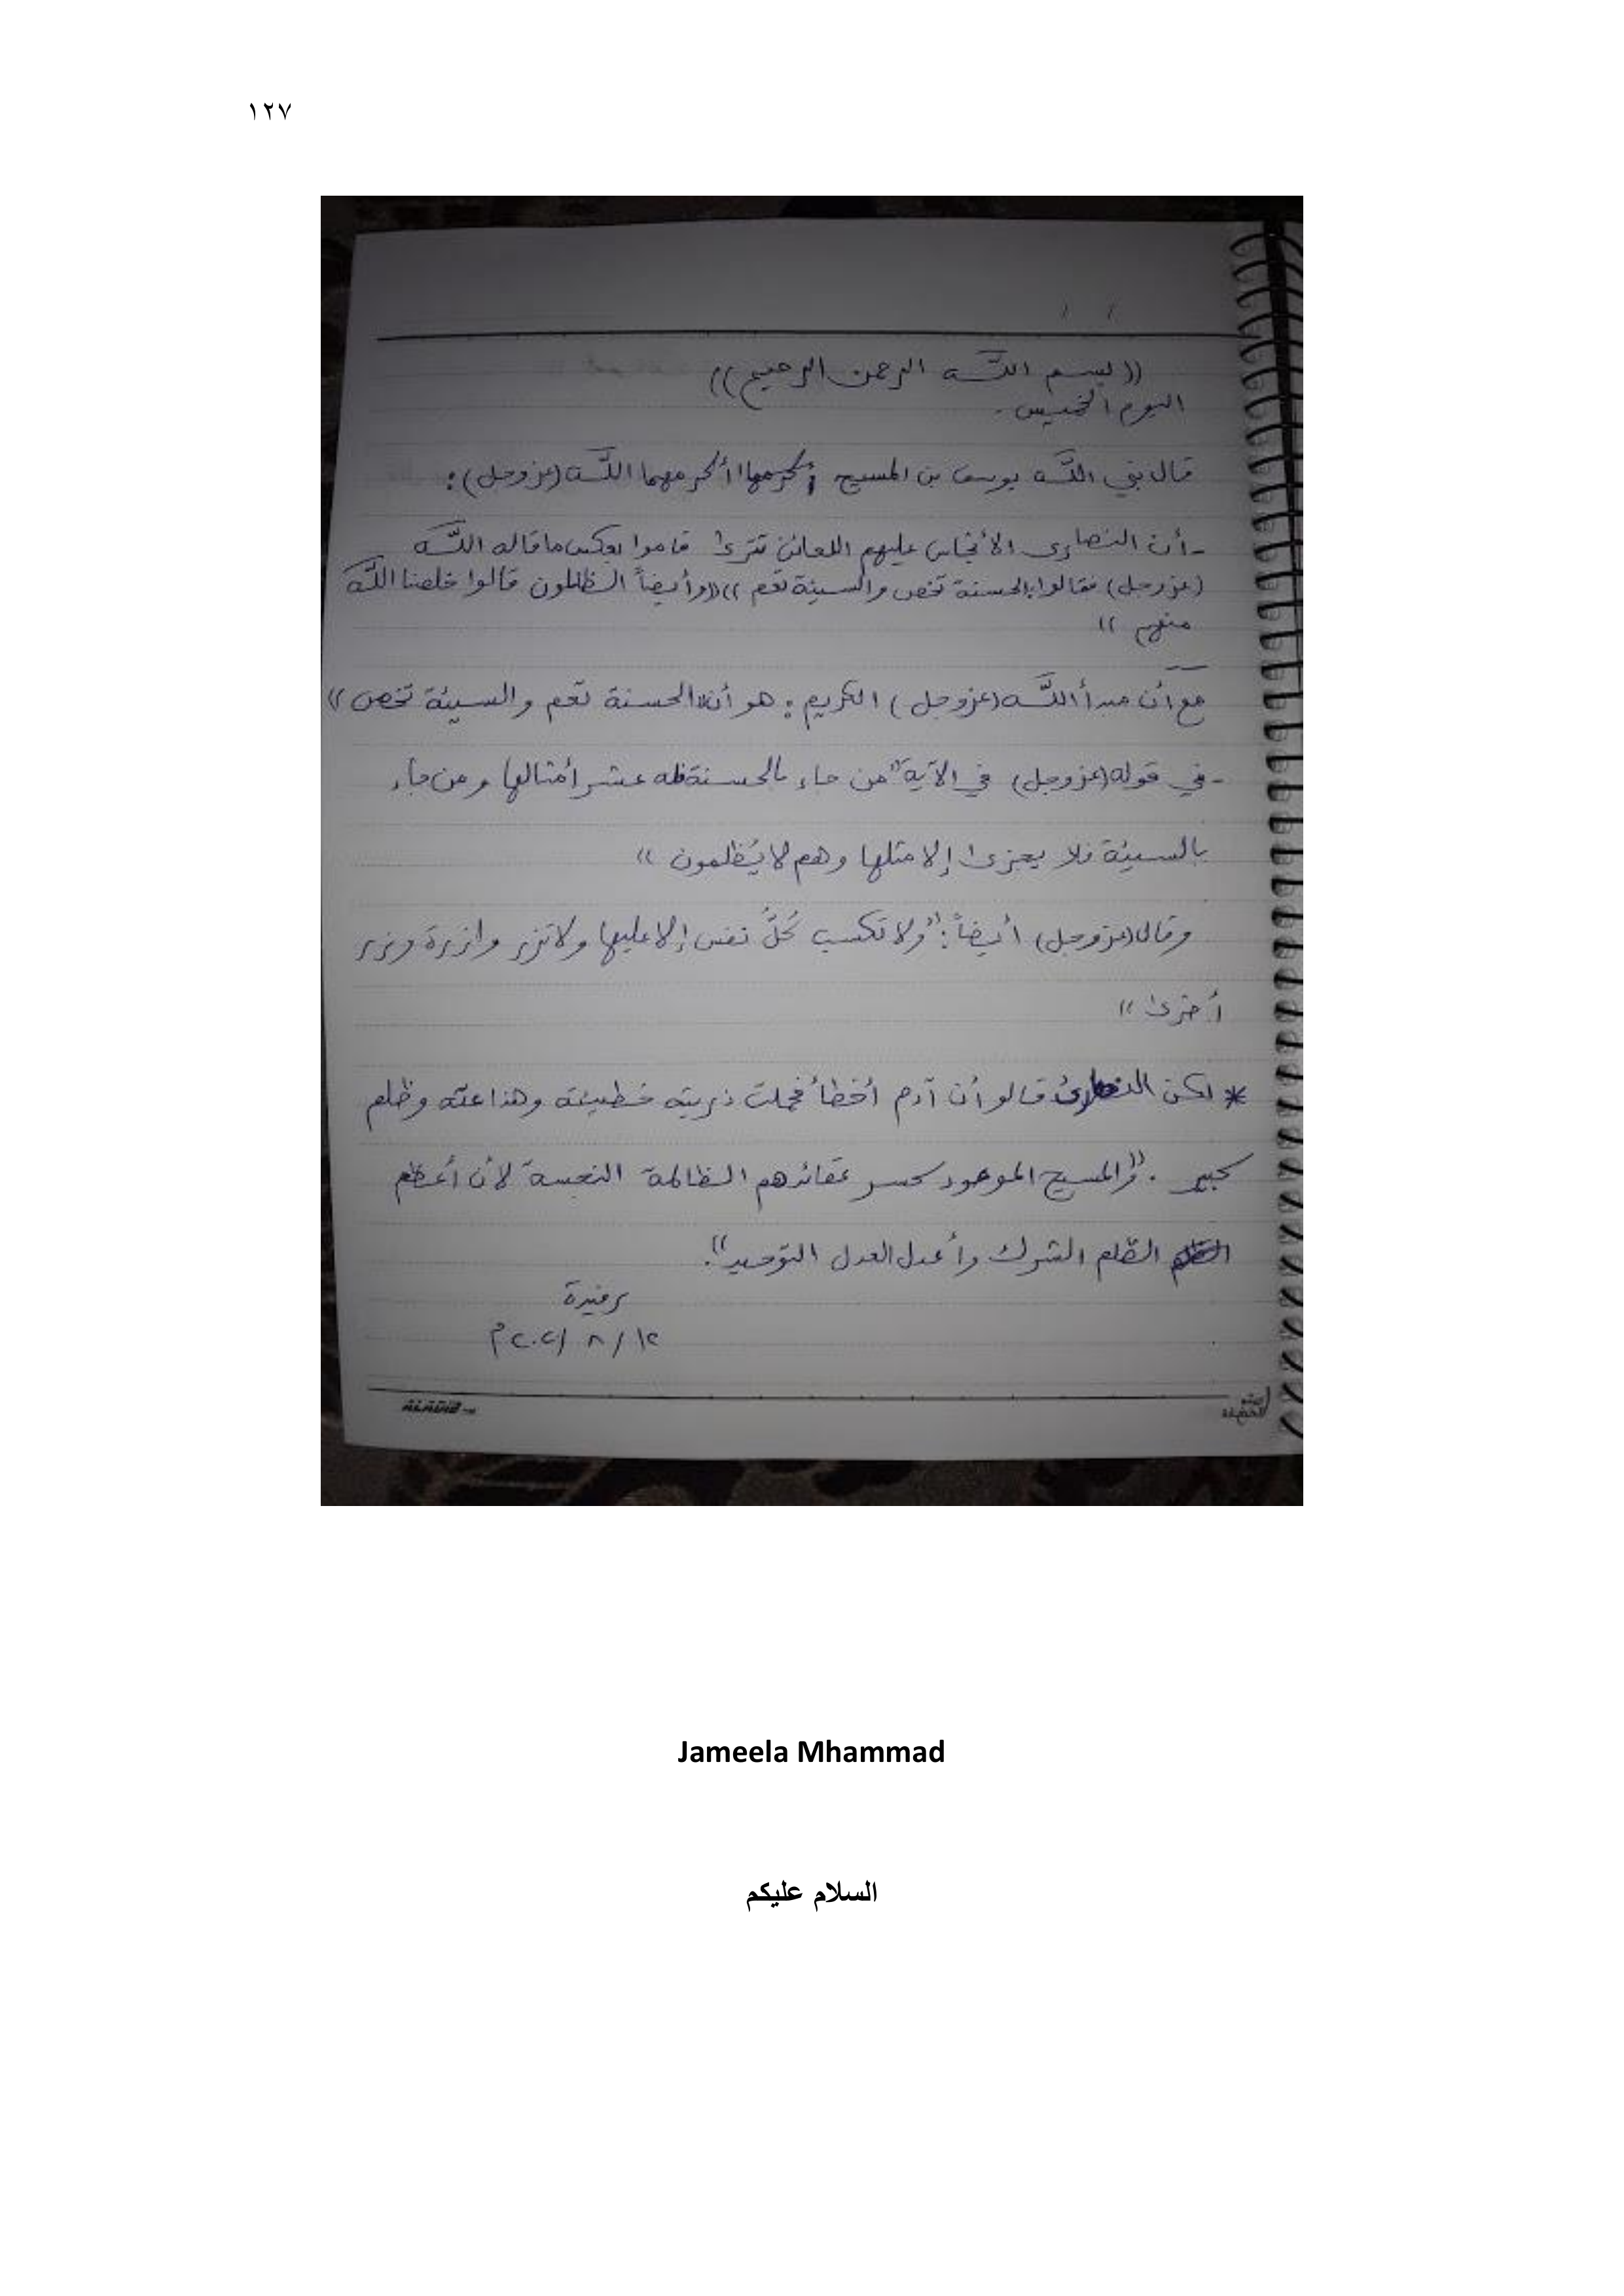 ١٢٧
((بسم اللّه الرحمن الرحيم))
اليوم الخميس .
قال نبي اللّه يوسف بن المسيح أكرمهما اللّه (عز وجل) :
- أن النصارى الأنجاس عليهم اللعائن تترىٰ قاموا بعكس ما قاله اللّه
(عز وجل) فقالوا "الحسنة تخص والسيئة تعم" "وأيضاً الظالمون قالوا خلصنا اللّه
منهم"
مع أن مبدأ اللّه (عز وجل) الكريم : هو أن "الحسنة تعم والسيئة تخص"
- في قوله (عز وجل) في الآية "من جاء بالحسنة فله عشر أمثالها ومن جاء
بالسيئة فلا يجزىٰ إلا مثلها وهم لا يُظلمون"
وقال (عز وجل) أيضاً : "ولا تكسب كُلُّ نفس إلا عليها ولا تزر وازرة وزر
أخرىٰ"
* لكن النصارىٰ قالو أن آدم أخطأ فحملت ذريته خطيئته وهذا عته وظلم
كبير . "والمسيح الموعود كسر عقائدهم الظالمة النجسة لأن أعظم
الظلم الشرك وأعدل العدل التوحيد".
رفيدة
١٢/ ٨ /٢٠٢١م
Jameela Mhammad
السلام عليكم